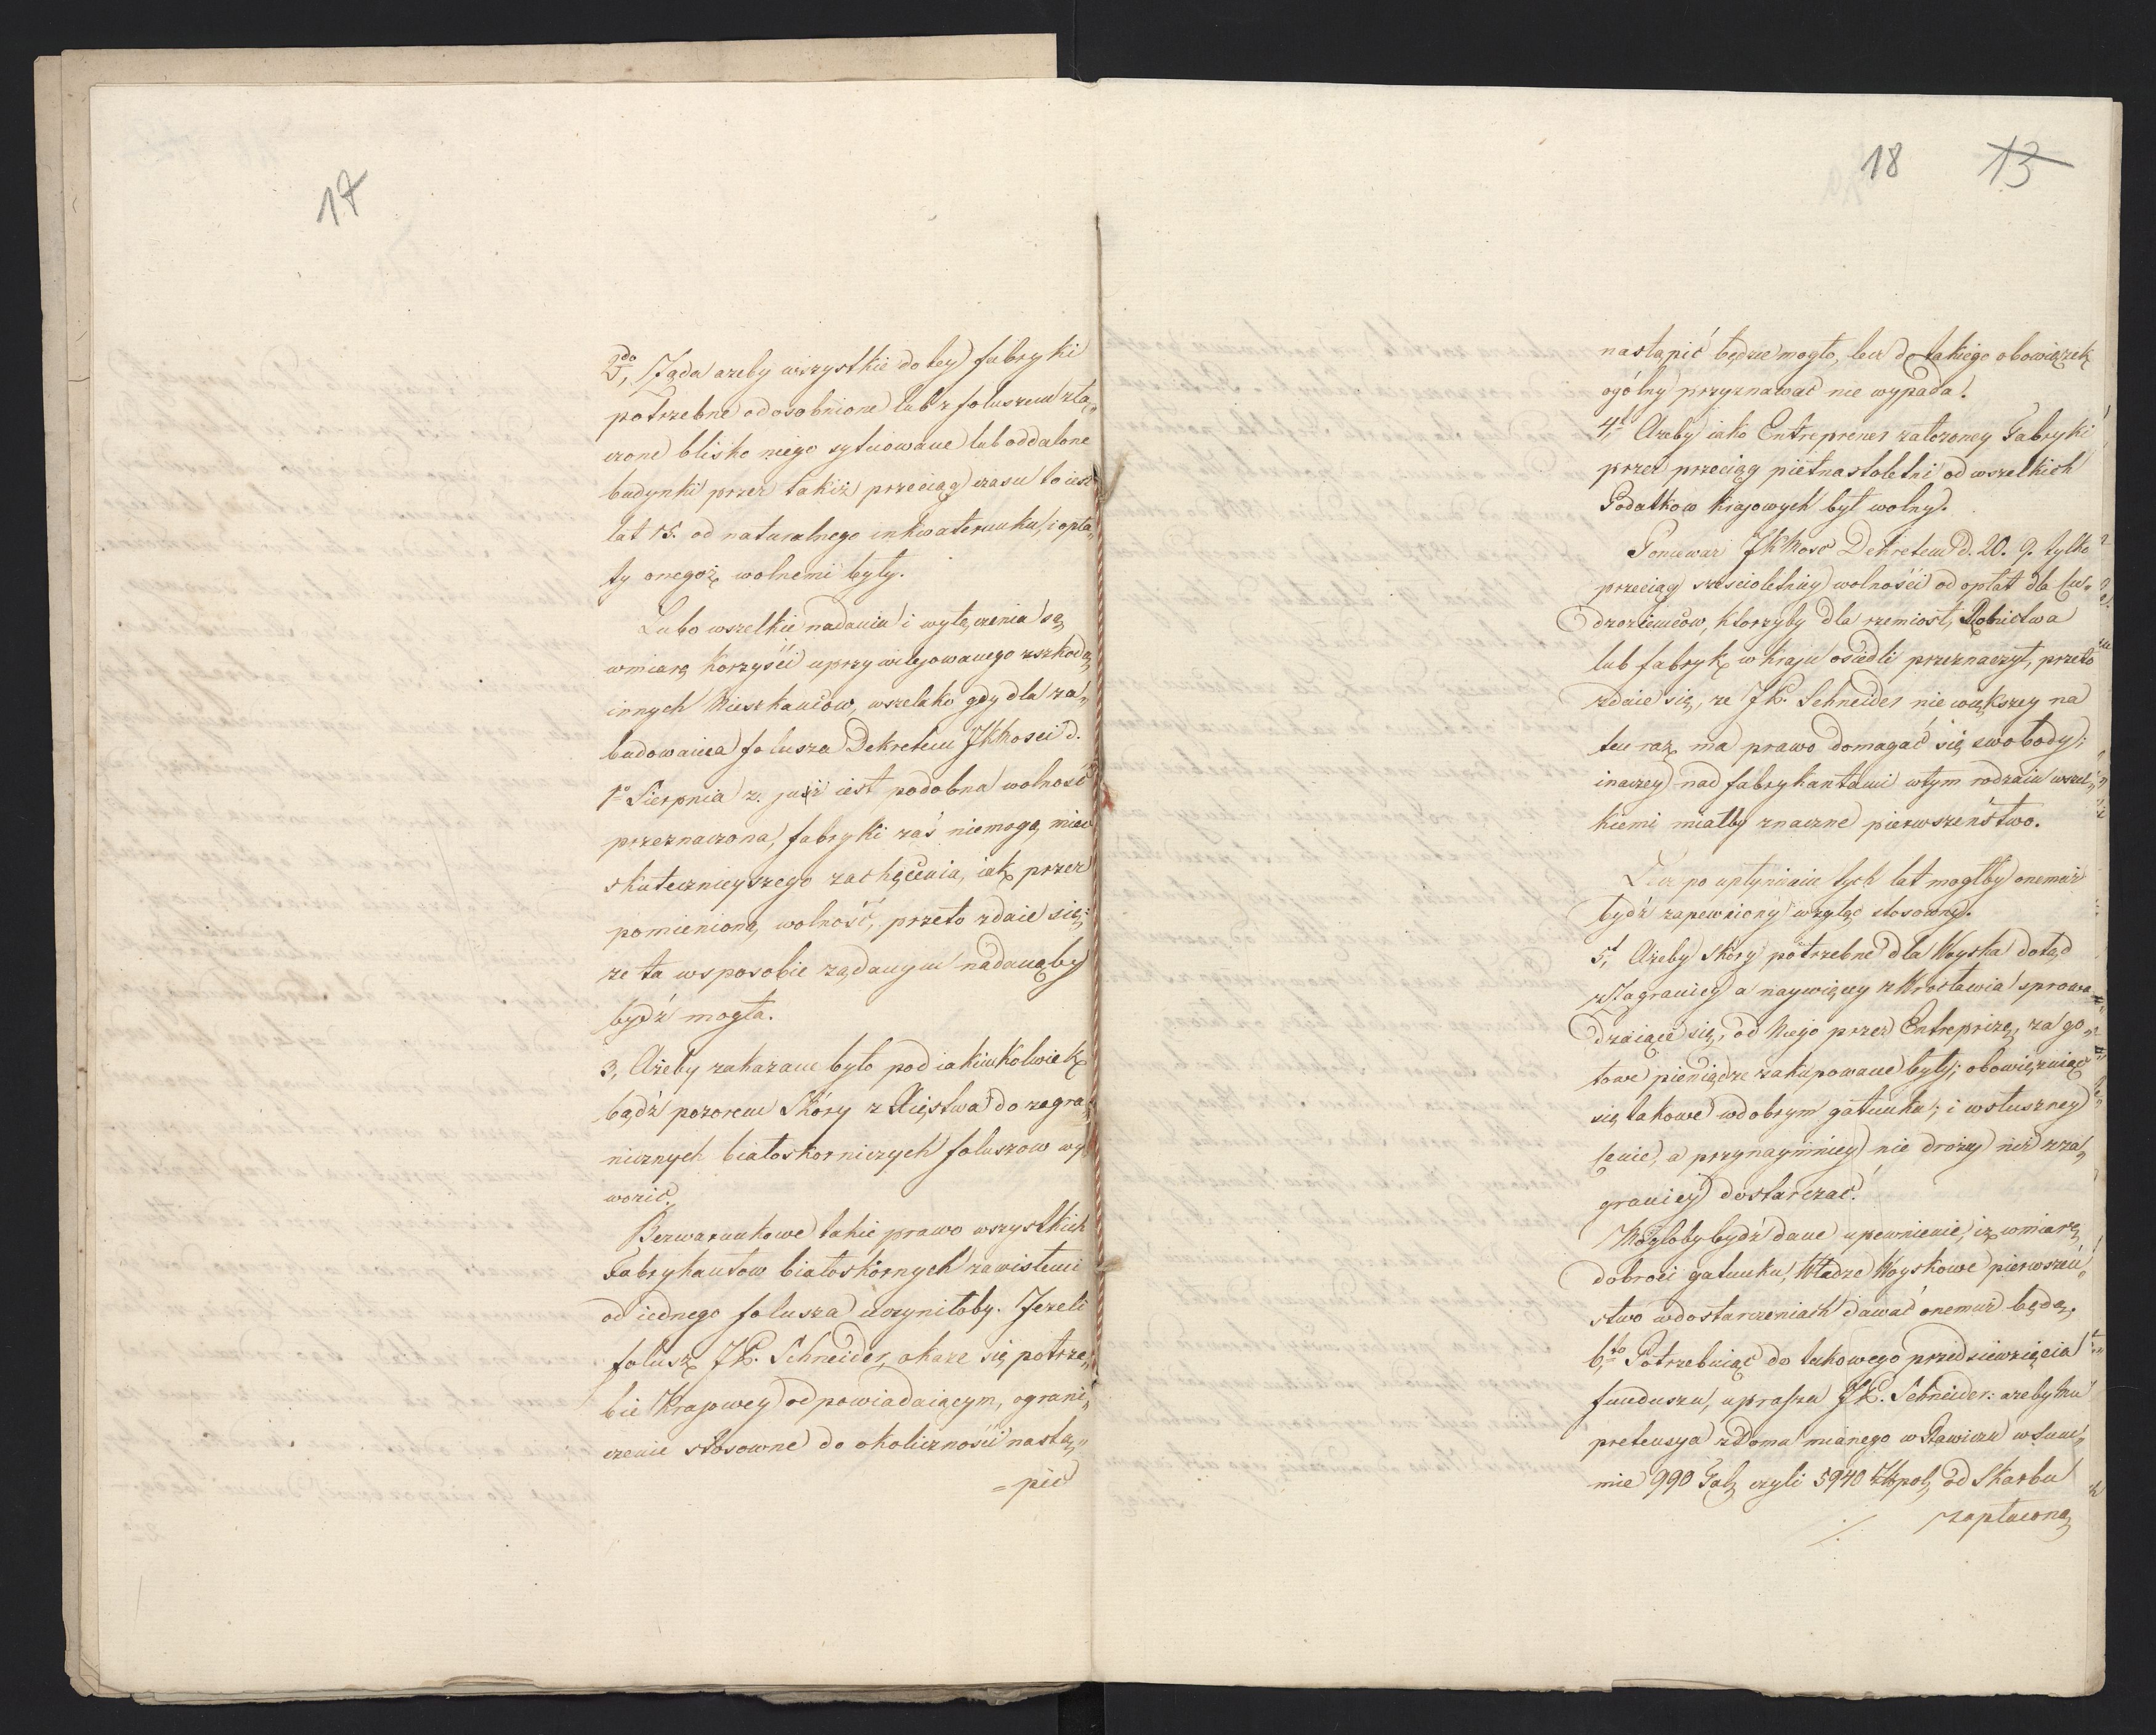 17
2do, Żąda ażeby wszystkie do tey fabryki
potrzebne odosobnione lub z foluszem złą„
czone blisko niego sytuowane lub oddalone
budynki przez takiż przeciąg czasu to iest
lat 15. od naturalnego inkwaterunku, i opła„
ty onegoż wolnemi były.
Lubo wszelkie nadania i wyłączenia są
wmiarę korzyści uprzywilejowanego zszkodą
innych Mieszkańców, wszelako gdy dla za„
budowania folusza Dekretem JKMosci d.
1o Sierpnia r. już iest podobna wolność
przeznaczona, fabryki zaś niemogą mieć
skutecznieyszego zachęcenia, iak przez
pomienioną wolność, przeto zdaie się:
ze ta wsposobie żądanym nadanąby
bydź mogła.
3, Ażeby zakazane było pod iakimkolwiek
bądź pozorem Skóry z Xięstwa do zagra„
nicznych białoskorniczych foluszow wy
wozić.
Bezwarunkowe takie prawo wszystkich
Fabrykantow białoskórnych zawisłemi
od iednego folusza uczyniłoby. Jeżeli
folusz JP. Schneider okaże się potrze„
bie Krajowey odpowiadaiącym, ograni„
czenie stosowne do okoliczności nastą„
=pić
18 13
nastąpić będzie mogło, lecz do takiego obowiązek
ogólny przyznawać nie wypada.
4t, Ażeby iako Entreprener założoney Fabryki
przez przeciąg piętnastoletni od wszelkich
Podatkow krajowych był wolny.
Ponieważ JKMość Dekretem d. 20. 9. tylko
przeciąg sześcioletniey wolności od opłat dla Cu„
dzoziemców, ktorzyby dla rzemiosł, Rolnictwa
lub fabryk w kraju osiedli przeznaczył, przeto
zdaie się, ze JP. Schneider nie większey na
ten raz ma prawo domagać się swobody;
inaczey nad fabrykantami wtym rodzaiu wszel„
kiemi miałby znaczne pierwszeństwo.
Lecz po upłynieniu tych lat mogłby onemuż
bydź zapewniony wzgląd stosowny.
5t, Ażeby Skory potrzebne dla Woyska dotąd
z Zagranicy a naywięcey z Wrocławia sprowa„
dzaiące się, od Niego przez Entreprizę, za go„
towe pieniądze zakupowane były; obowięzuiąc
się takowe wdobrym gatunku, i wsłuszney
Cenie, a przynaymniey nie drożey niż zza„
granicy dostarczać.
Mogłoby bydź dane upewnienie, iż wmiarę
dobroci gatunku, Władze Woyskowe pierwszeń„
stwo wdostarczeniach dawać onemuż będą.
6to, Potrzebuiąc do takowego przedsiewzięcia
funduszu, uprasza JP. Schneider: ażeby mu
pretensya z Domu mianego w Rawiczu wSum„
mie 990 Tal, czyli 5940 Złpol, od Skarbu
zapłaconą